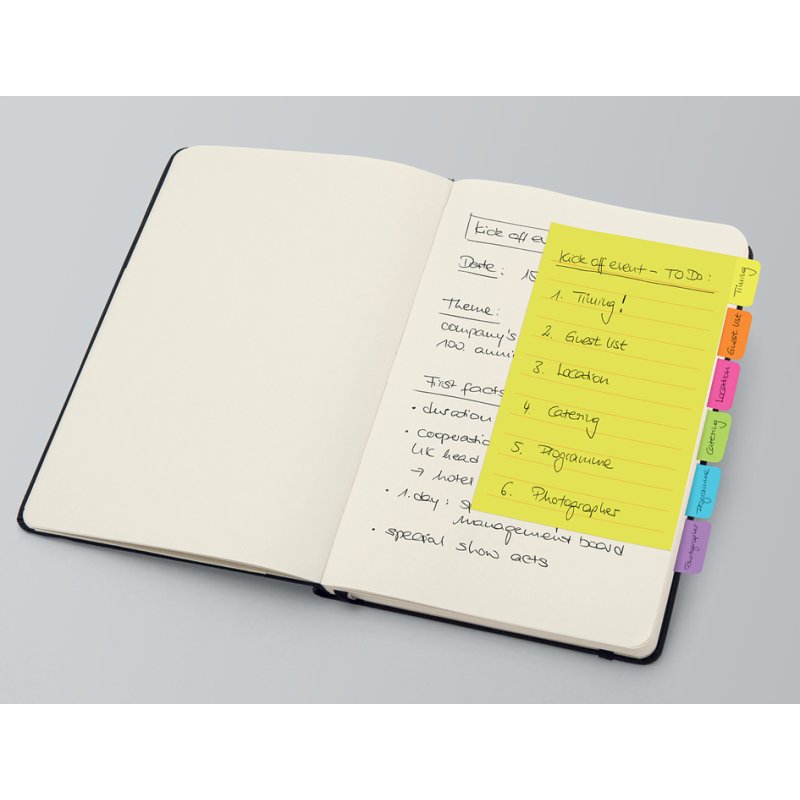 Kick off ev
Date: 15
Theme:
company's
100. anni
First facts
• duration
• cooperatio
UK head
→ hotel
• 1.day: sp
management board
• special show acts
Kick off event – TO DO:
1. Timing!
2. Guest list
3. Location
4. Catering
5. Programme
6. Photographer
Timing
Guest list
Location
Catering
Programme
Photographer